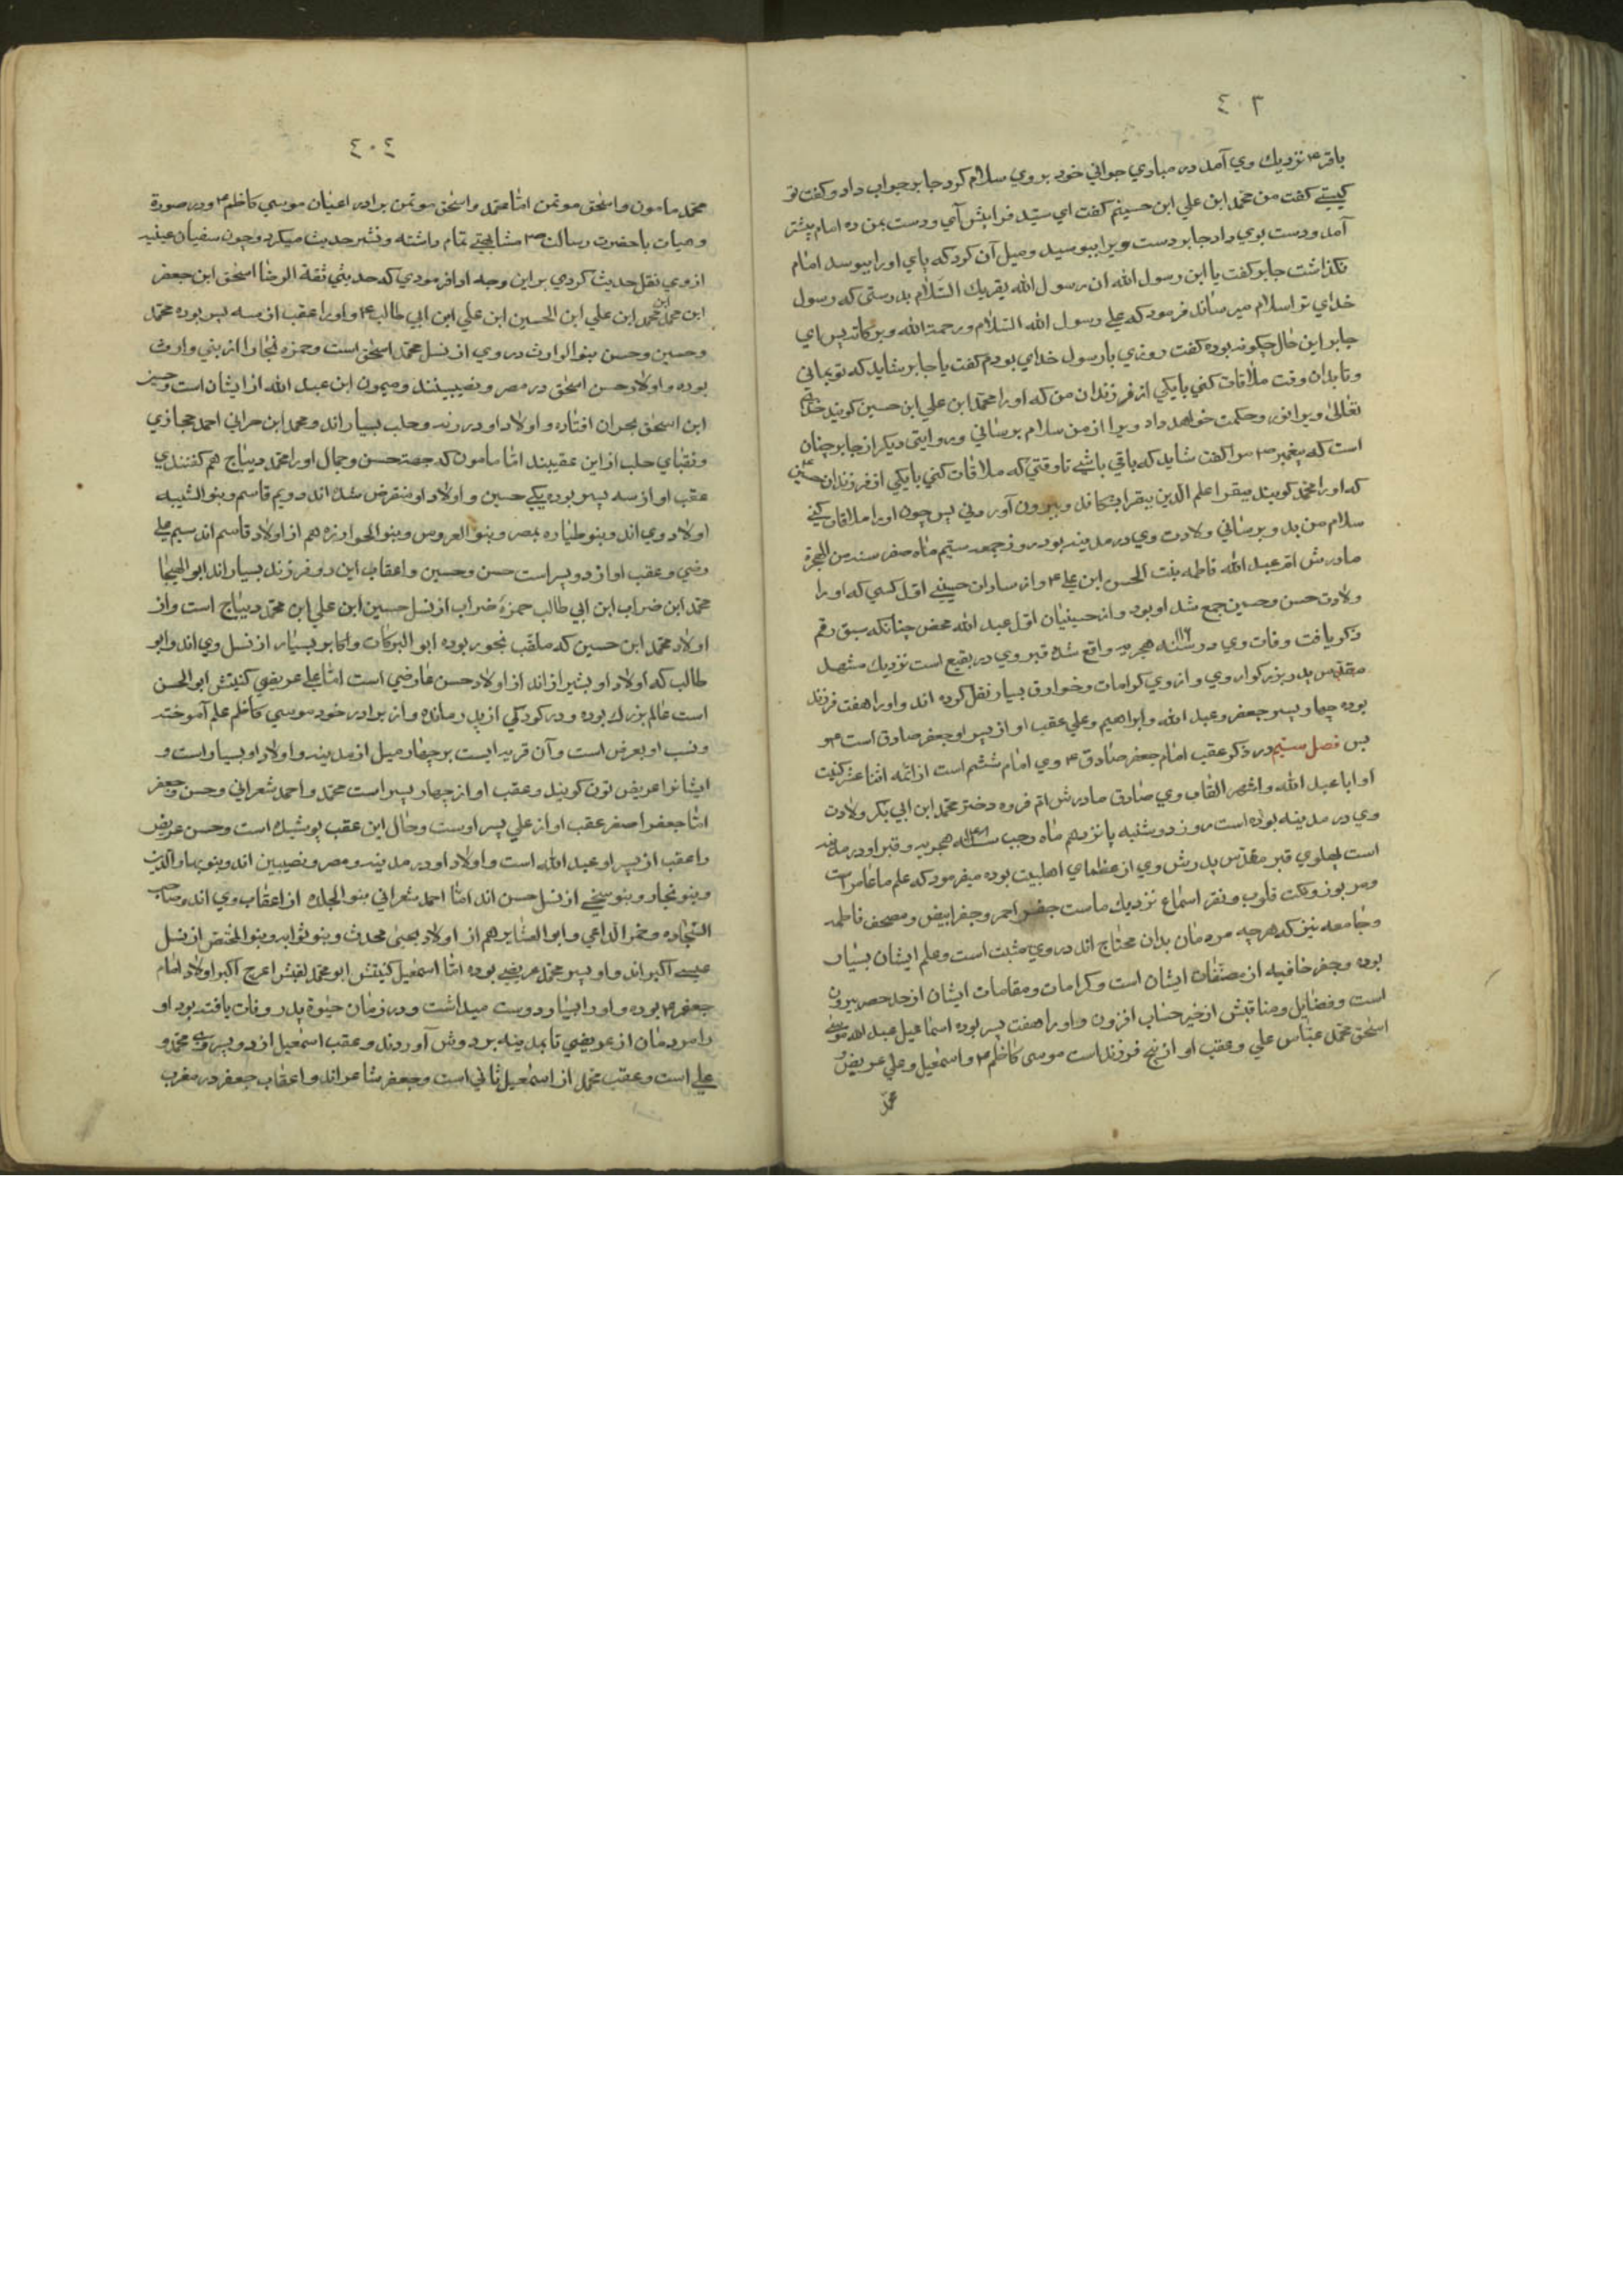 ٤٠٣
باقر ع نزديك وي آمد در مبادي جواني خود بر وي سلام كرد جابر جواب داد و كفت تو
كيستي كفت من محمد ابن علي ابن حسينم كفت اي سيد فرا پش آي و دست بمن ده امام پيشتر
آمد و دست بوي داد جابر دست ويرا ببوسيد و ميل آن كرد كه پاي او را ببوسد امام
نكذاشت جابر كفت يا ابن رسول الله ان رسول الله يقريك السّلام بدرستى كه رسول
خداي تو را سلام ميرساند فرمود كه علي رسول الله السّلام ورحمة الله وبركاته پس اي
جابر اين حال چكونه بوده كفت روزي با رسول خداي بودم كفت يا جابر شايد كه تو بماني
و تا بدان وقت ملاقات كني با يكي از فرزندان من كه او را محمد ابن علي ابن حسين كويند خداي
تعالى ويرا نور و حكمت خواهد داد ويرا از من سلام برساني و در روايتى ديكر از جابر چنان
است كه پيغمبر ص مرا كفت شايد كه باقي باشي تا وقتي كه ملاقات كني با يكي از فرزندان حسين
كه او را محمد كويند يبقر علم الدّين بقرا پس چون او را ملاقات كني
سلام من بدو برساني ولادت وي در مدينه بود روز جمعه سيم ماه صفر سنه من الهجرة
مادرش ام عبد الله فاطمه بنت الحسن ابن علي ع و از سادات حسيني اوّل كسي كه او را
ولادت حسن و حسين جمع شد او بود و از حسينيان اوّل عبد الله محض چنانكه سبق رقم
ذكر يافت وفات وي در سنه هجريه واقع شده قبر وي در بقيع است نزديك مشهد
مقدّس پدر بزركوار وي و از وي كرامات و خوارق بسيار نقل كرده اند و او را هفت فرزند
بوده چهار پسر جعفر و عبد الله و ابراهيم و علي عقب او از پسر او جعفر صادق است ع و
بس فصل سيم در ذكر عقب امام جعفر صادق ع وي امام ششم است از ائمّه اثنا عشر كنيت
او ابا عبد الله و اشهر القاب وي صادق مادرش ام فروه دختر محمد ابن ابي بكر ولادت
وي در مدينه بوده است روز دوشنبه پانزدهم ماه رجب سنه ١٤٨ هجريه و قبر او در مدينه
است پهلوي قبر مقدّس پدرش وي از عظماي اهلبيت بوده ميفرمود كه علم ما غابر است
و مزبور و نكت قلوب و نقر اسماع نزديك ماست جفر احمر و جفر ابيض و مصحف فاطمه
و جامعه نيز كه هرچه مردمان بدان محتاج اند در وي مثبت است و علم ايشان بسيار
بوده و جفر خافيه از مصنّفات ايشان است و كرامات و مقامات ايشان از حد حصر بيرون
است و فضايل و مناقبش از حيز حساب افزون و او را هفت پسر بوده اسماعيل عبد الله موسي
اسحق محمد عباس علي و عقب او از پنج فرزند است موسى كاظم ع و اسمعيل و علي عريض و
محمد
٤٠٤
محمد مامون و اسحق موتمن امّا محمد و اسحق موتمن برادر اعيان موسي كاظم ع و در صورة
و هيات با حضرت رسالت ص مشابهتي تمام داشته و نشر حديث ميكرد و چون سفيان عينيه
از وي نقل حديث كردي بر اين وجه ادا فرمودي كه حدثني ثقة الرضا اسحق ابن جعفر
ابن محمد ابن علي ابن الحسين ابن علي ابن ابي طالب ع و او را عقب از سه پسر بوده محمد
و حسين و حسن بنو الوارث در وي از نسل محمد اسحق است و حمزه نجار از بني وارث
بوده و اولاد حسن اسحق در مصر و نصيبينند و ميمون ابن عبد الله از ايشان است و حسين
ابن اسحق بحران افتاده و اولاد او در رقه و حلب بسيار اند و محمد ابن حراني احمد حجازي
و نقباي حلب از اين عقيبند امّا مامون كه جهة حسن و جمال او را محمد ديباج هم كفتندي
عقب او از سه پسر بوده يكي حسين و اولاد او منقرض شده اند دويم قاسم و بنو الشبيه
اولاد وي اند و بنو طياره بمصر و بنو العروس و بنو الخوارزه هم از اولاد قاسم اند سيم علي
رضي و عقب او از دو پسر است حسن و حسين و اعقاب اين دو فرزند بسيار اند ابو الهيجا
محمد ابن ضراب ابن ابي طالب حمزهٔ ضراب از نسل حسين ابن علي ابن محمد ديباج است و از
اولاد محمد ابن حسين كه ملقّب بجور بوده ابو البركات و اكابر بسيار از نسل وي اند و ابو
طالب كه اولاد او بشيراز اند از اولاد حسن عارضي است امّا علي عريضي كنيتش ابو الحسن
است عالم بزرك بوده و در كودكي از پدر مانده و از برادر خود موسي كاظم علم آموخته
و نسب او بعرض است و آن قريه ايست بر چهار ميل از مدينه و اولاد او بسيار است و
ايشانرا عريضيّون كويند و عقب او از چهار پسر است محمد و احمد شعراني و حسن و جعفر
امّا جعفر اصغر عقب او از علي پسر اوست و حال اين عقب پوشيده است و حسن عريض
را عقب از پسر او عبد الله است و اولاد او در مدينه و مصر و نصيبين اند و بنو بهاء الدين
و بنو نجار و بنو سخي از نسل حسن اند امّا احمد شعراني بنو الجده از اعقاب وي اند و صاحب
السّجاده و فخر الداعي و ابو العشاير هم از اولاد يحيى محدث و بنو ثوابه و بنو المختص از نسل
عيسي اكبر اند و او پسر محمد عريضي بوده امّا اسمعيل كنيتش ابو محمد لقبش اعرج اكبر اولاد امام
جعفر ع بوده و او را بسيار دوست ميداشت و در زمان حيوة پدر وفات يافته بود او
را مردمان از عريضي تا بمدينه بر دوش آوردند و عقب اسمعيل از دو پسر وي محمد و
علي است و عقب محمد از اسمعيل ثاني است و جعفر شاعر اند و اعقاب جعفر در مغرب